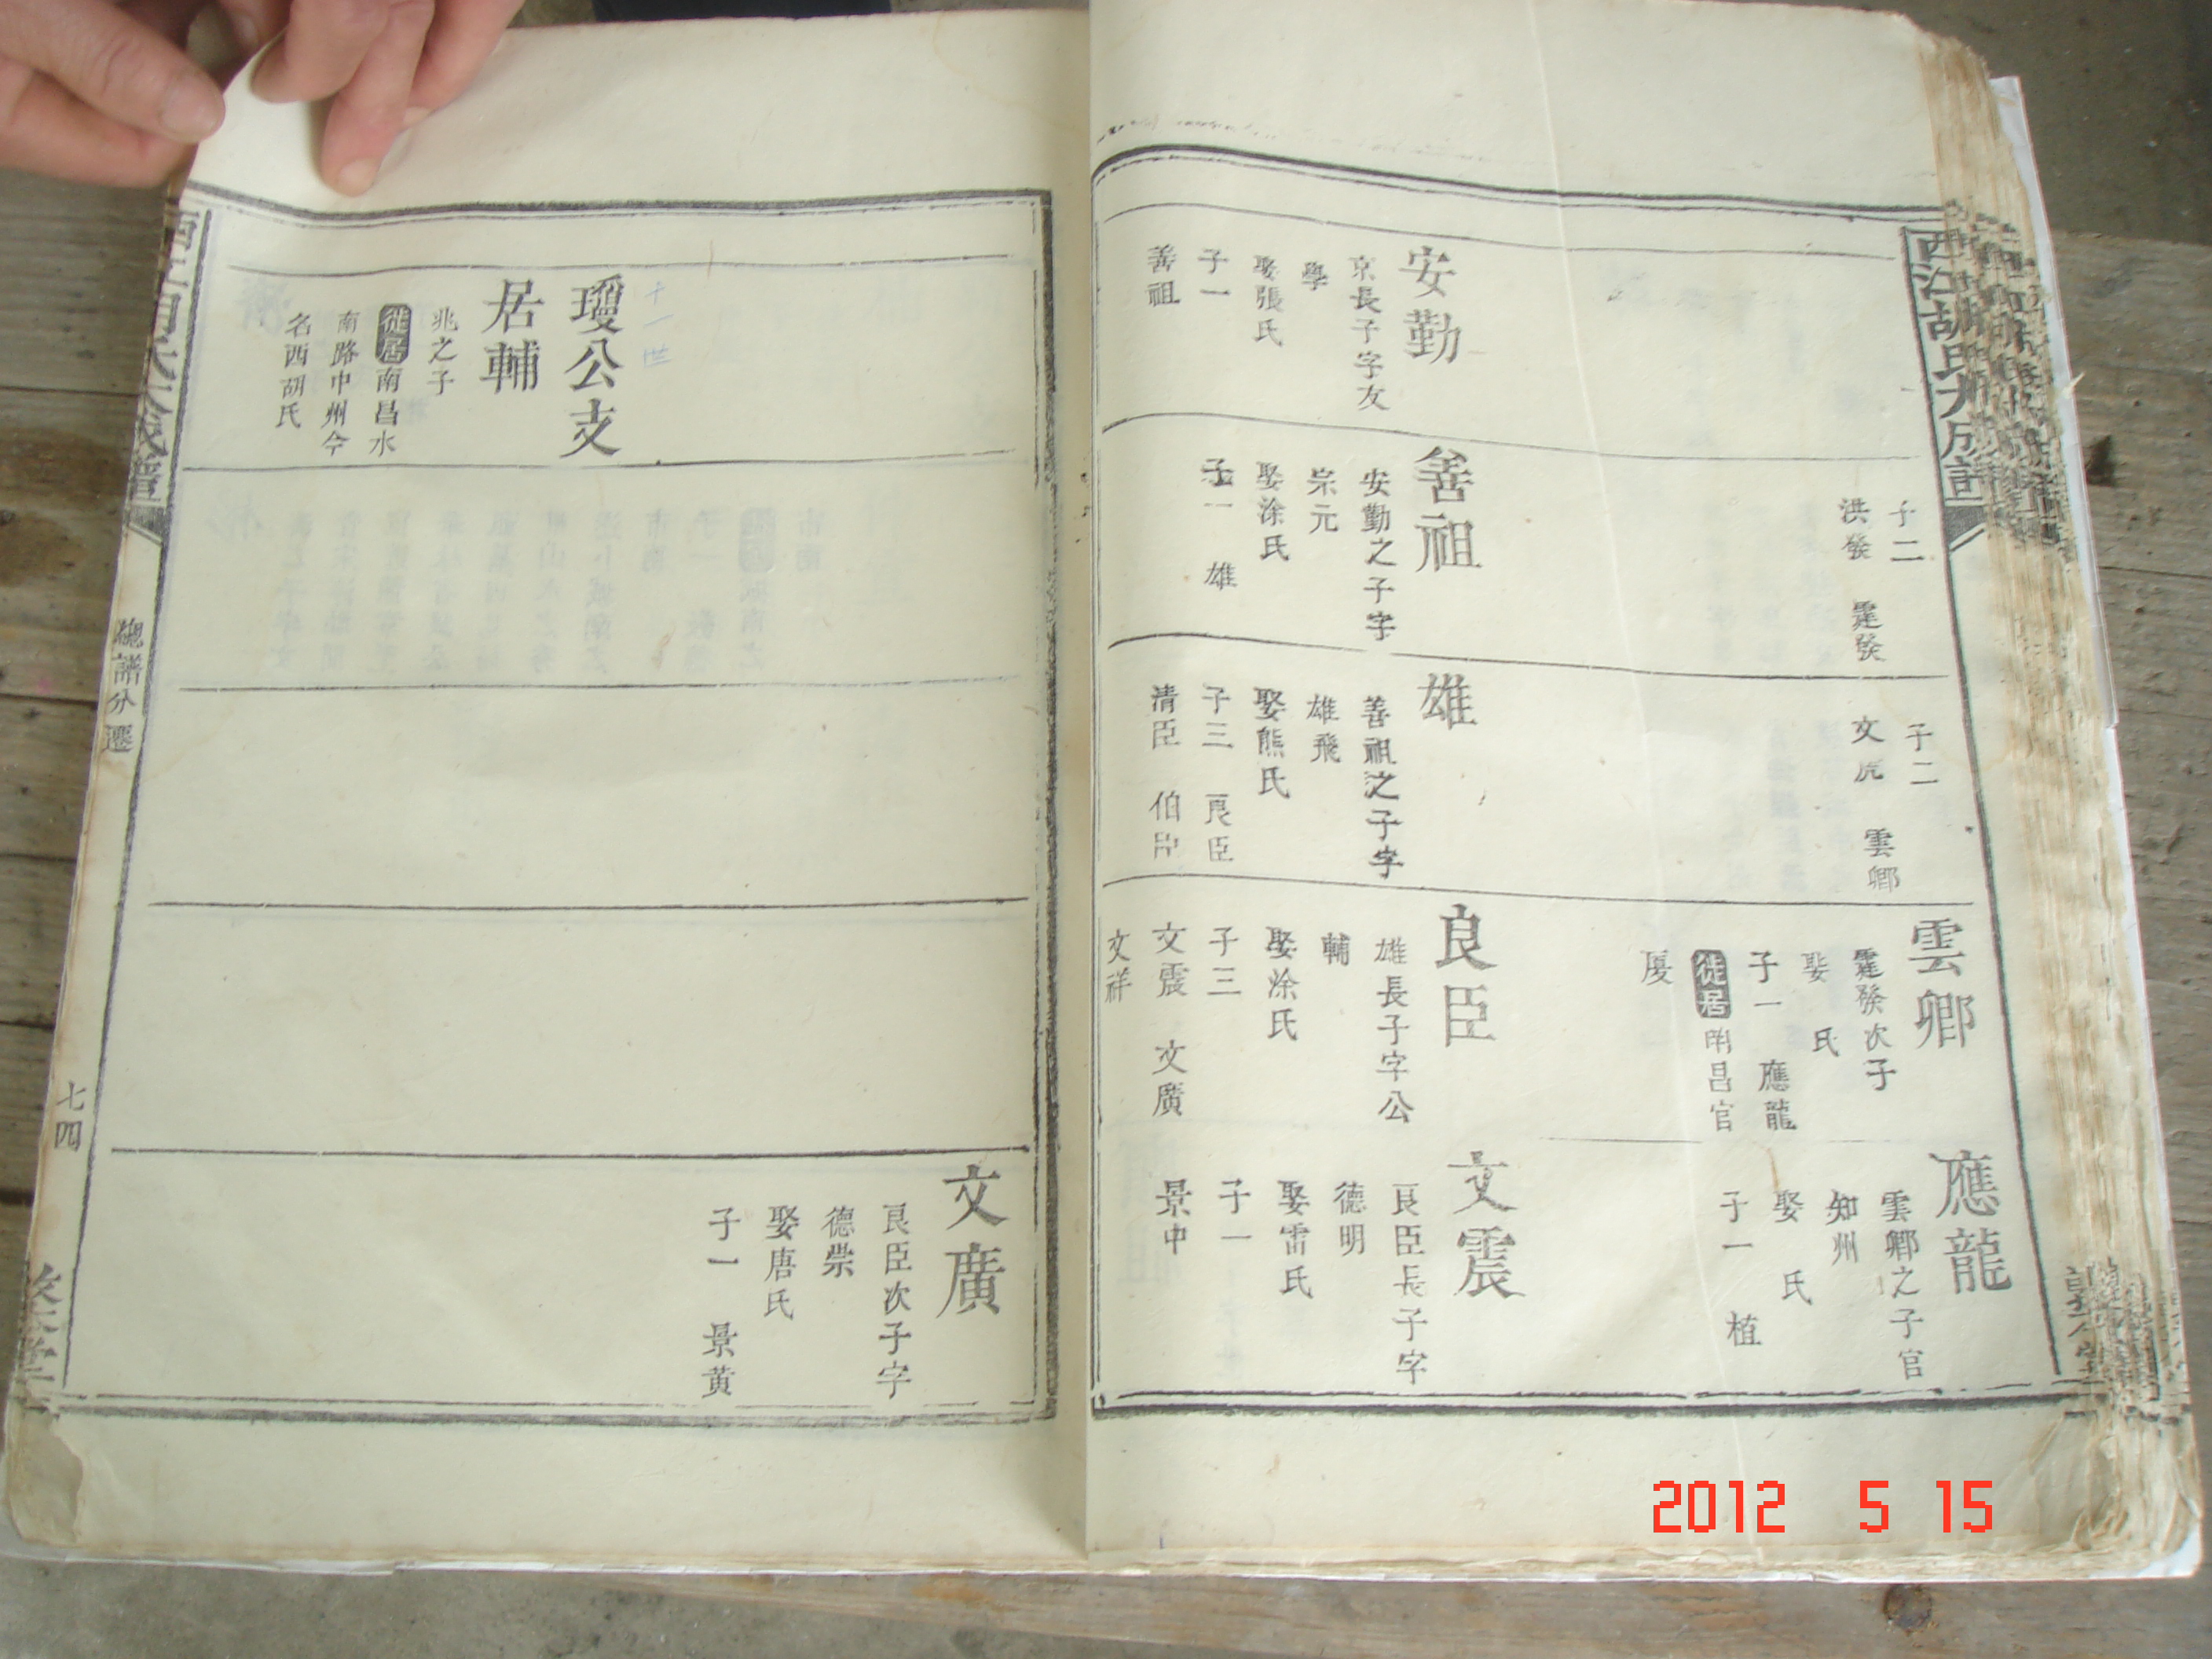 西江胡氏大成譜
子二
洪發 霆發
子二
文虎 雲卿
雲卿
霆發次子
娶 氏
子一 應龍
徙居南昌官
厦
應龍
雲卿之子官
知州
娶 氏
子一 植
安勤
京長子字友
學
娶張氏
子一
善祖
善祖
安勤之子字
宗元
娶涂氏
子一 雄
雄
善祖之子字
雄飛
娶熊氏
子三 良臣
清臣 伯臣
良臣
雄長子字公
輔
娶涂氏
子三
文震 文廣
文祥
文震
良臣長子字
德明
娶雷氏
子一
景中
十一世
瓊公支
居輔
兆之子
徙居南昌水
南路中州今
名西胡氏
文廣
良臣次子字
德崇
娶唐氏
子一 景黃
總譜分遷
七四
2012 5 15